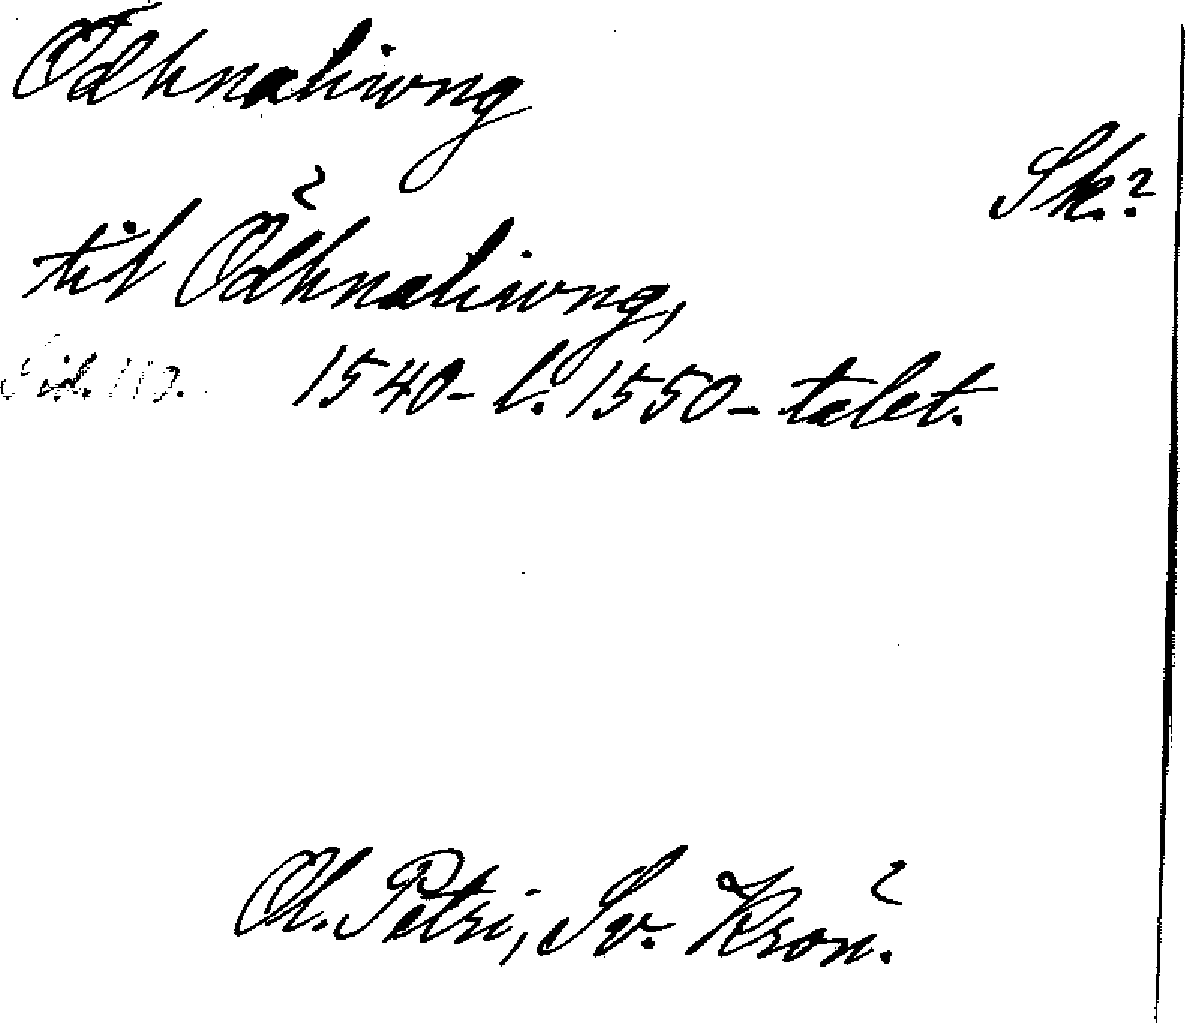 Ödhnaliwng
Sk.?
til Ödhnaliwng,
Sid. 1540- l. 1550-talet.
Ol. Petri, Sv. Krön.